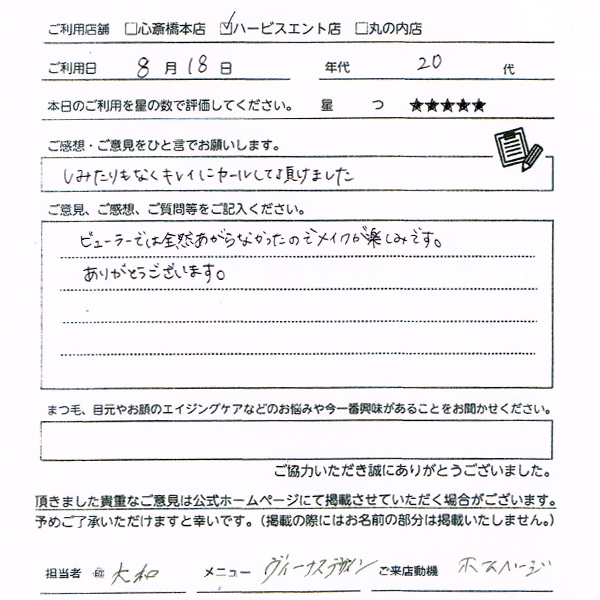 ご利用店舗 □心斎橋本店 ☑ハービスエント店 □丸の内店
ご利用日 8月18日 年代 20代
本日のご利用を星の数で評価してください。 星 つ ★★★★★
ご感想・ご意見をひと言でお願いします。
しみたりもなくキレイにカールしてる頂けました
ご意見、ご感想、ご質問等をご記入ください。
ビューラーでは全然あがらなかったのでメイクが楽しみです。
ありがとうございます。
まつ毛、目元やお顔のエイジングケアなどのお悩みや今一番興味があることをお聞かせください。
ご協力いただき誠にありがとうございました。
頂きました貴重なご意見は公式ホームページにて掲載させていただく場合がございます。
予めご了承いただけますと幸いです。(掲載の際にはお名前の部分は掲載いたしません。)
担当者 大和 メニュー ヴィーナスデザイン ご来店動機 ホームページ